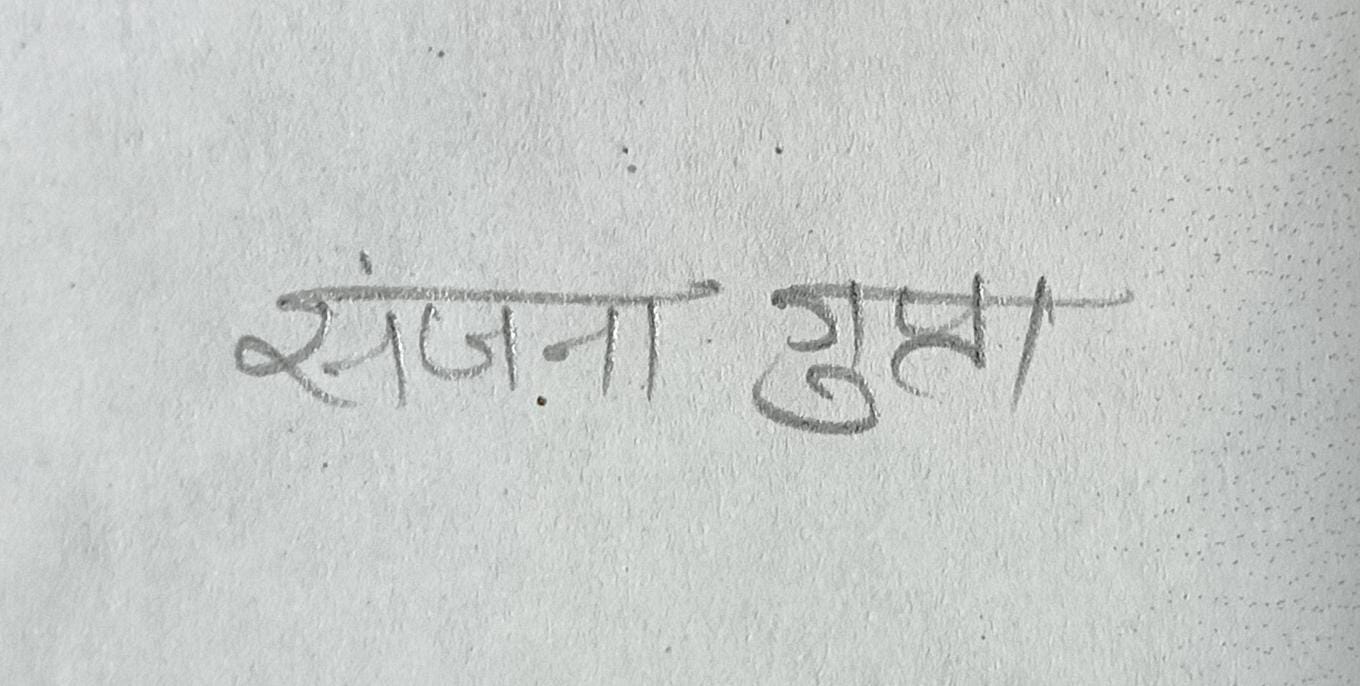 संजना गुप्ता